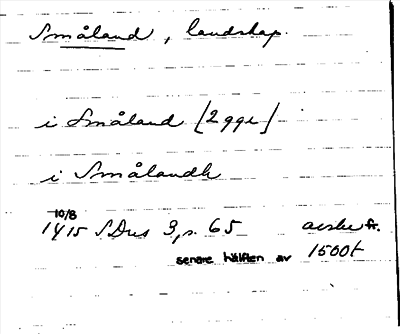 Småland, landskap.
i Småland [2 ggr]
i Smålandh
10/8
1415 SDns 3, s. 65 avskr fr.
senare hälften av 1500t